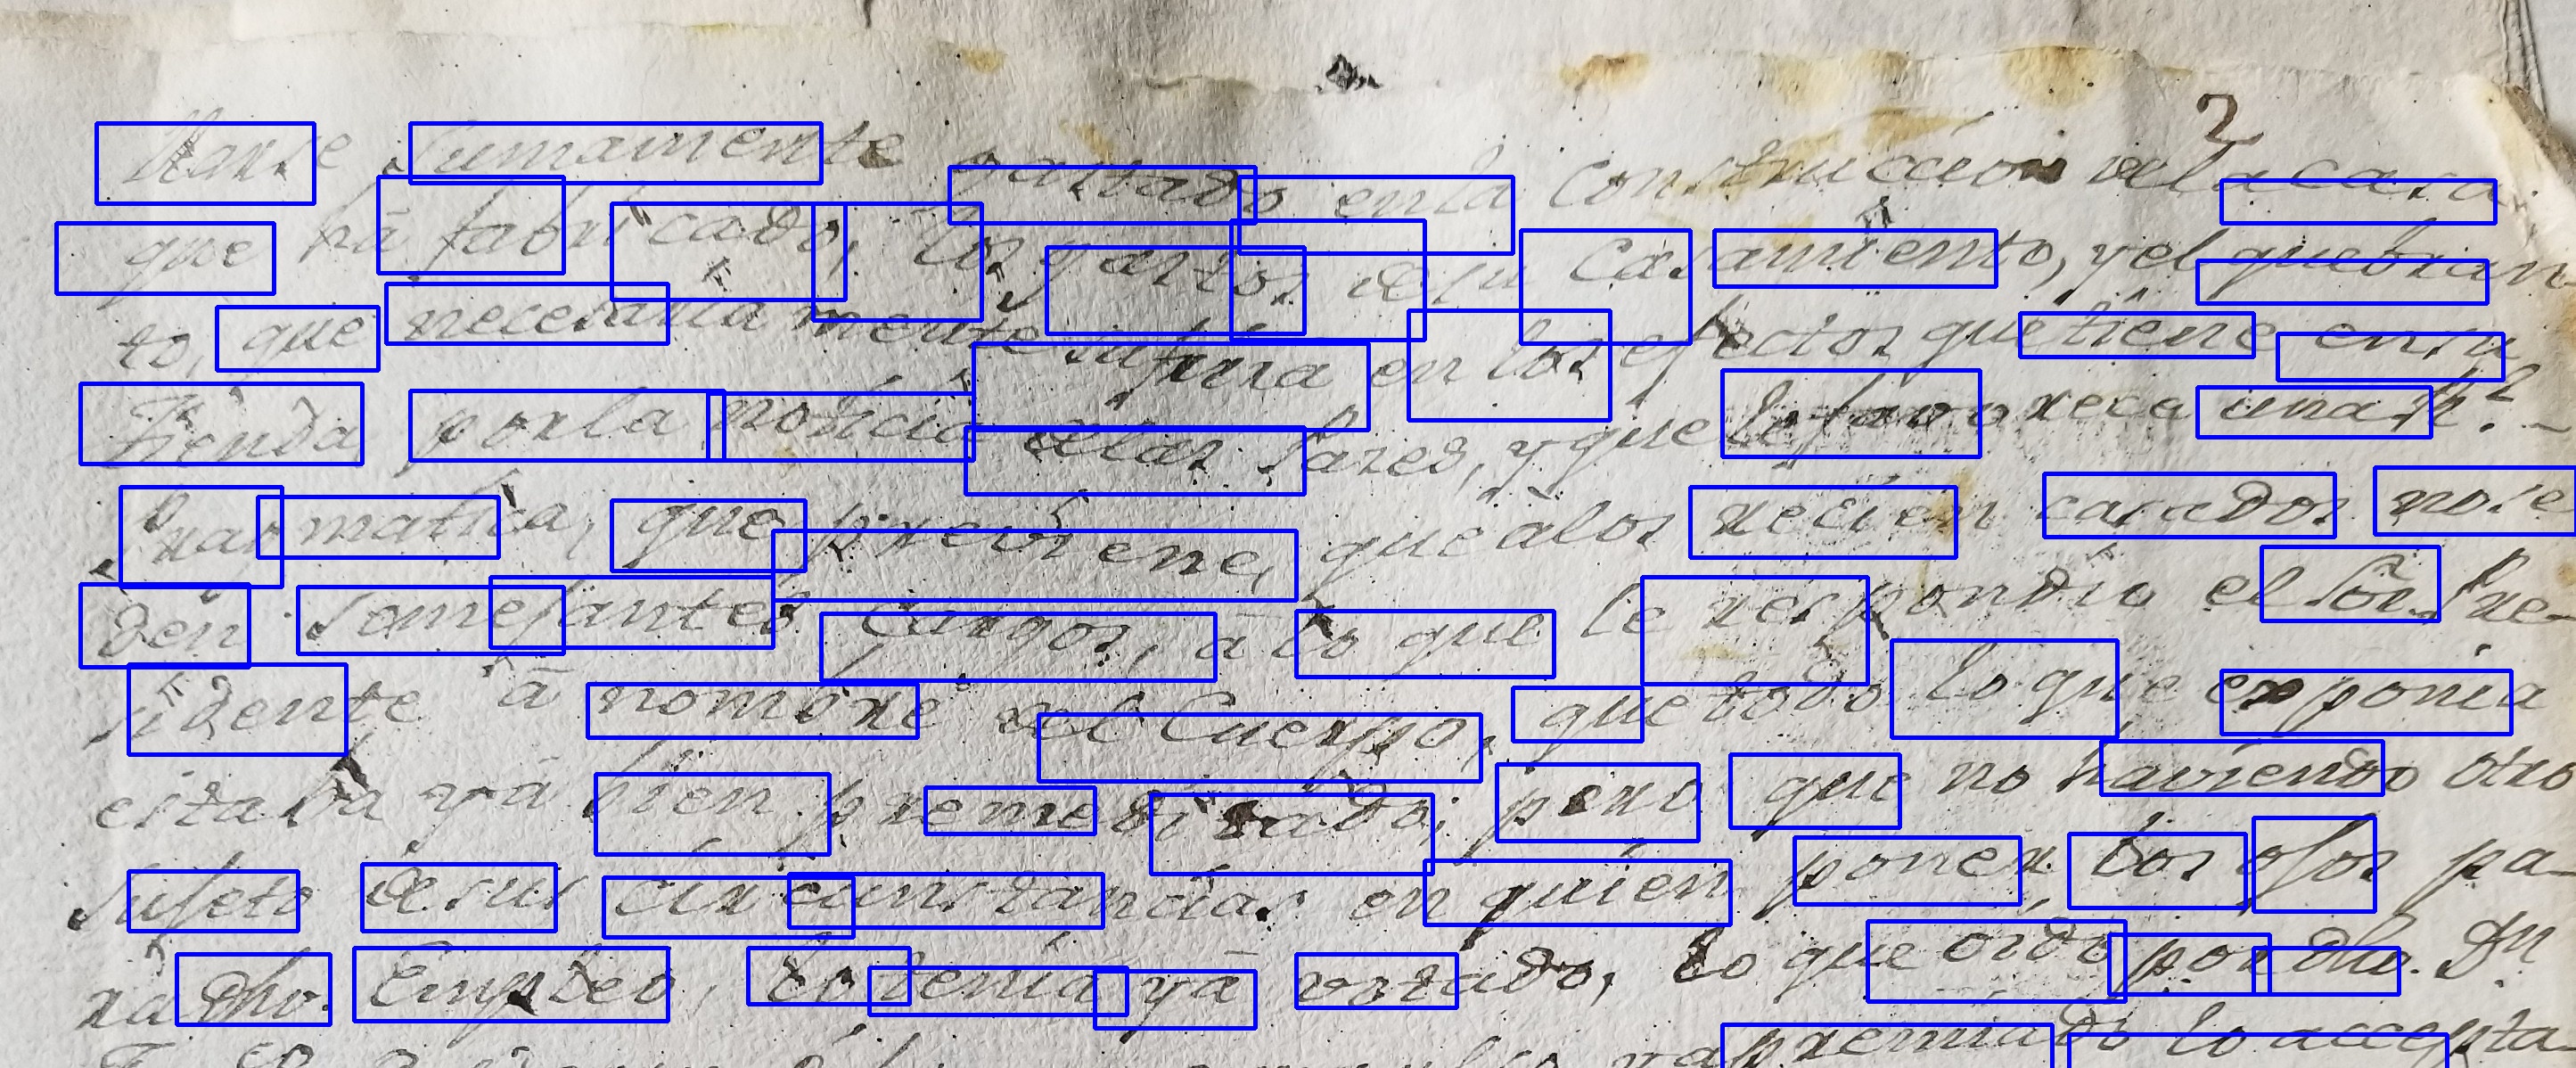 2
sumamente gastado en la Construccion dela casa,
que há fabricado, los gastos desu Casamiento, y el quebran
to, que necesariamente sufriria en los efectos que tiene en su
Tienda por la noticia delas Pazes, y que le favoreceria una Rl. -
Pracmatica, que previene, que álos recien casados no se
den semejantes Cargos, á lo que le respondio el Sōr. Pre-
sidente á nombre del Cuerpo, que todo lo que exponia
estaba yá bien premeditado; pero que no haviendo otro
sujeto de sus circunstancias en quien poner los ojos pa-
ra dho. Empleo, lo tenia yá votado, lo que oido por dho. Dn
apremiado lo accepta-